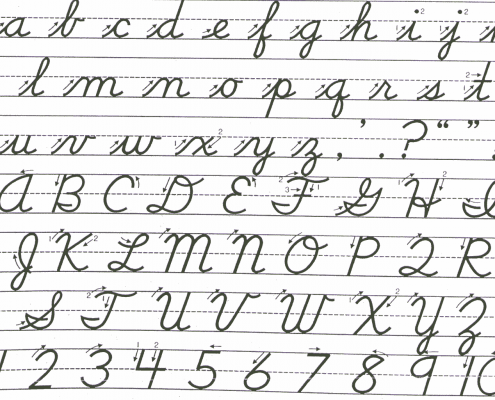 a b c d e f g h i j
l m n o p q r s t
u v w x y z , ' . ? “ ”
A B C D E F G H
J K L M N O P Q R
S T U V W X Y Z
1 2 3 4 5 6 7 8 9 10